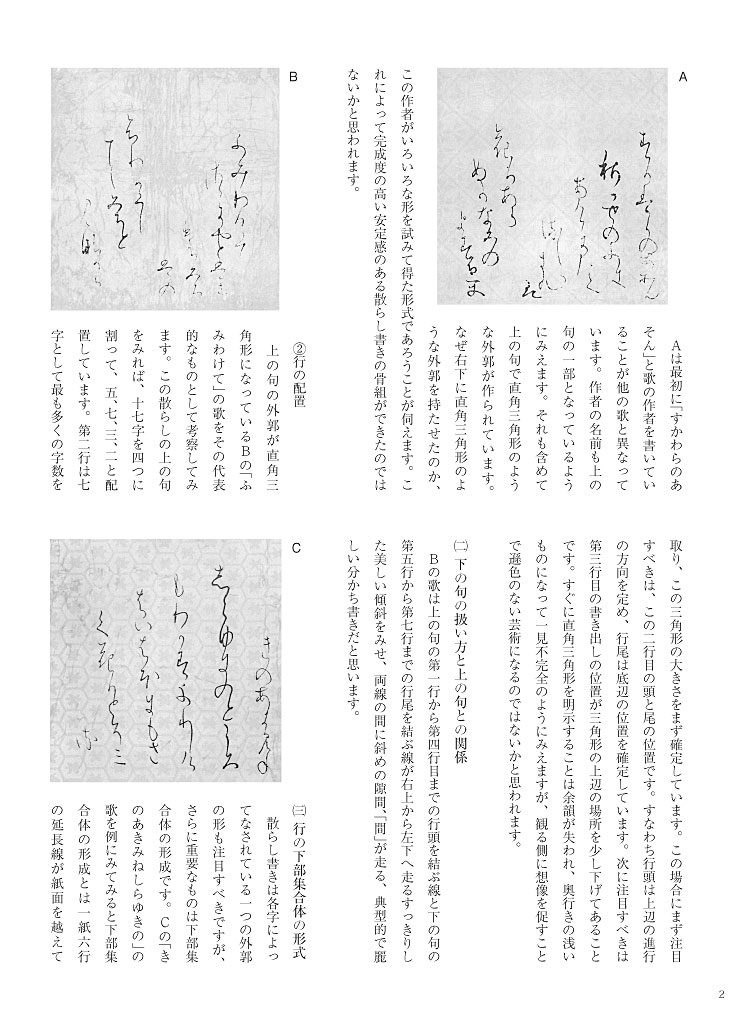 A
Aは最初に「すかわらのあ
そん」と歌の作者を書いてい
ることが他の歌と異なって
います。作者の名前も上の
句の一部となっているよう
にみえます。それも含めて
上の句で直角三角形のよう
な外郭が作られています。
なぜ右下に直角三角形のよ
うな外郭を持たせたのか、
この作者がいろいろな形を試みて得た形式であろうことが伺えます。こ
れによって完成度の高い安定感のある散らし書きの骨組ができたのでは
ないかと思われます。
B
②行の配置
上の句の外郭が直角三
角形になっているBの「ふ
みわけて」の歌をその代表
的なものとして考察してみ
ます。この散らしの上の句
をみれば、十七字を四つに
割って、五、七、三、二と配
置しています。第二行は七
字として最も多くの字数を
取り、この三角形の大きさをまず確定しています。この場合にまず注目
すべきは、この二行目の頭と尾の位置です。すなわち行頭は上辺の進行
の方向を定め、行尾は底辺の位置を確定しています。次に注目すべきは
第三行目の書き出しの位置が三角形の上辺の場所を少し下げてあること
です。すぐに直角三角形を明示することは余韻が失われ、奥行きの浅い
ものになって一見不完全のようにみえますが、観る側に想像を促すこと
で遜色のない芸術になるのではないかと思われます。
㈡ 下の句の扱い方と上の句との関係
Bの歌は上の句の第一行から第四行目までの行頭を結ぶ線と下の句の
第五行から第七行までの行尾を結ぶ線が右上から左下へ走るすっきりし
た美しい傾斜をみせ、両線の間に斜めの隙間、「間」が走る、典型的で麗
しい分かち書きだと思います。
C
㈢ 行の下部集合体の形式
散らし書きは各字によっ
てなされている一つの外郭
の形も注目すべきですが、
さらに重要なものは下部集
合体の形成です。Cの「き
のあきみねしらゆきの」の
歌を例にみてみると下部集
合体の形成とは一紙六行
の延長線が紙面を越えて
2